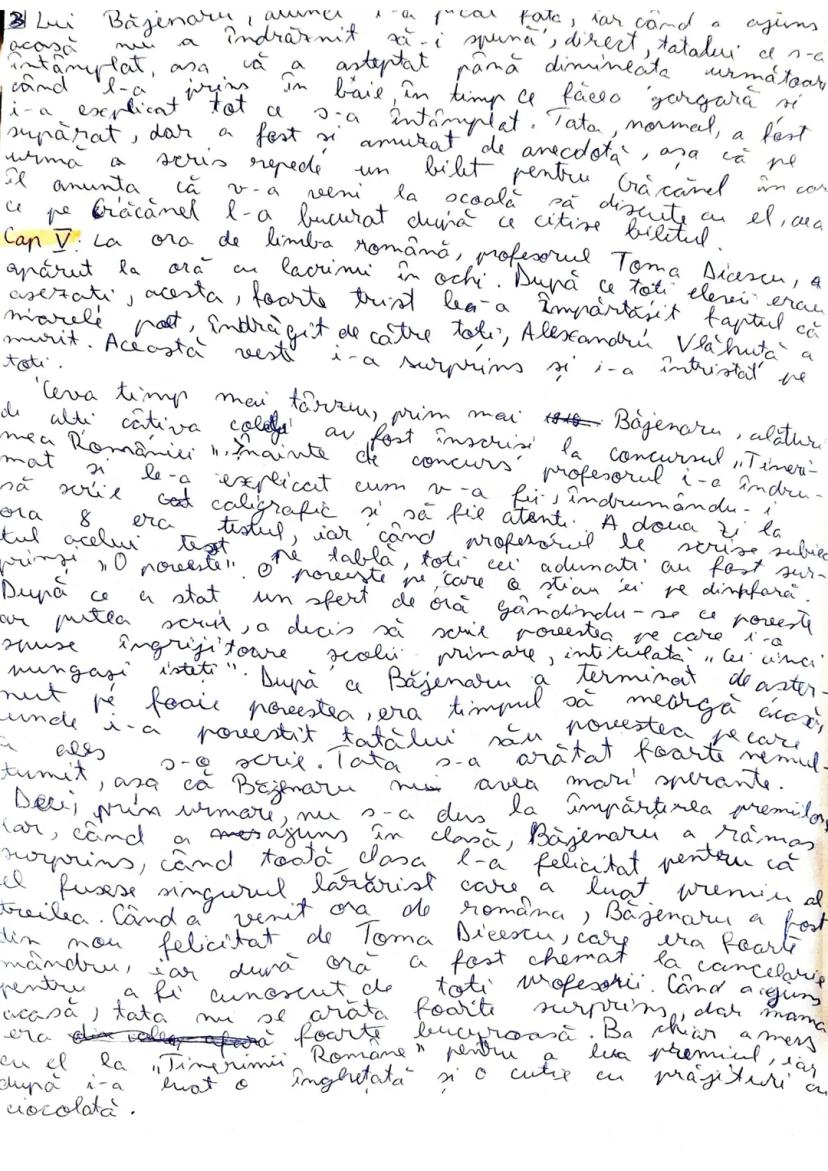 3) Lui Băjenaru, atunci i-a picat fața, iar când a ajuns
acasă nu a îndrăznit să-i spună, direct, tatalui ce s-a
întâmplat, asa că a asteptat până dimineata următoare
când l-a prins în băie, în timp ce făcea gargară si
i-a explicat tot ce s-a întâmplat. Tata, normal, a fost
supărat, dar a fost si amuzat de anecdotă, asa că pe
urmă a scris repede un bilet pentru Crăcănel în care
îl anunta că v-a veni la scoală să discute cu el, cea
ce pe Crăcănel l-a bucurat după ce citise biletul.
Cap V: La ora de limba română, profesorul Toma Dicescu, a
apărut la oră cu lacrimi în ochi. După ce toti elevii erau
asezati, acesta, foarte trist lea-a împărtăsit faptul că
marele poet, îndrăgit de către toti, Alexandru Vlăhută a
murit. Această vesti i-a surprins și i-a întristat pe
toti.
Ceva timp mai târziu, prim mai Băjenaru, alături
de alti câtiva colegi au fost înscrisi la concursul „Tineri-
mea României". Înainte de concurs profesorul i-a îndru-
mat si le-a explicat cum v-a fii, îndrumându-i
să scrie caligrafic si să fie atenti. A doua zi la
ora 8 era testul, iar când profesorul le scrise subiec-
tul acelui test pe tablă, toti cei adunati au fost sur-
prinsi „O poveste". O poveste pe care o stiau ei pe dinafară.
După ce a stat un sfert de oră gândindu-se ce poveste
ar putea scrie, a decis să scrie povestea pe care i-o
spuse îngrijitoare scolii primare, intitulată „Cei cinci
pungasi isteti". După ce Băjenaru a terminat de aster-
nut pe foaie povestea, era timpul să meargă acasă,
unde i-a povestit tatălui său povestea pe care
a ales s-o scrie. Tata s-a arătat foarte nemul-
tumit, asa că Băjenaru nu avea mari sperante.
Deci, prin urmare, nu s-a dus la împărtirea premiilor
iar, când a ajuns în clasă, Băjenaru a rămas
surprins, când toată clasa l-a felicitat pentru că
el fusese singurul lăzărist care a luat premiu al
treilea. Când a venit ora de româna, Băjenaru a fost
din nou felicitat de Toma Dicescu, care era foarte
mândru, iar după oră a fost chemat la cancelarie
pentru a fi cunoscut de toti profesorii. Când a ajuns
acasă, tata nu se arăta foarte surprins, dar mama
era foarte bucuroasă. Ba chiar a mers
cu el la „Tinerimii Române" pentru a lua premiul, iar
după i-a luat o înghetată și o cutie cu prăjituri cu
ciocolată.